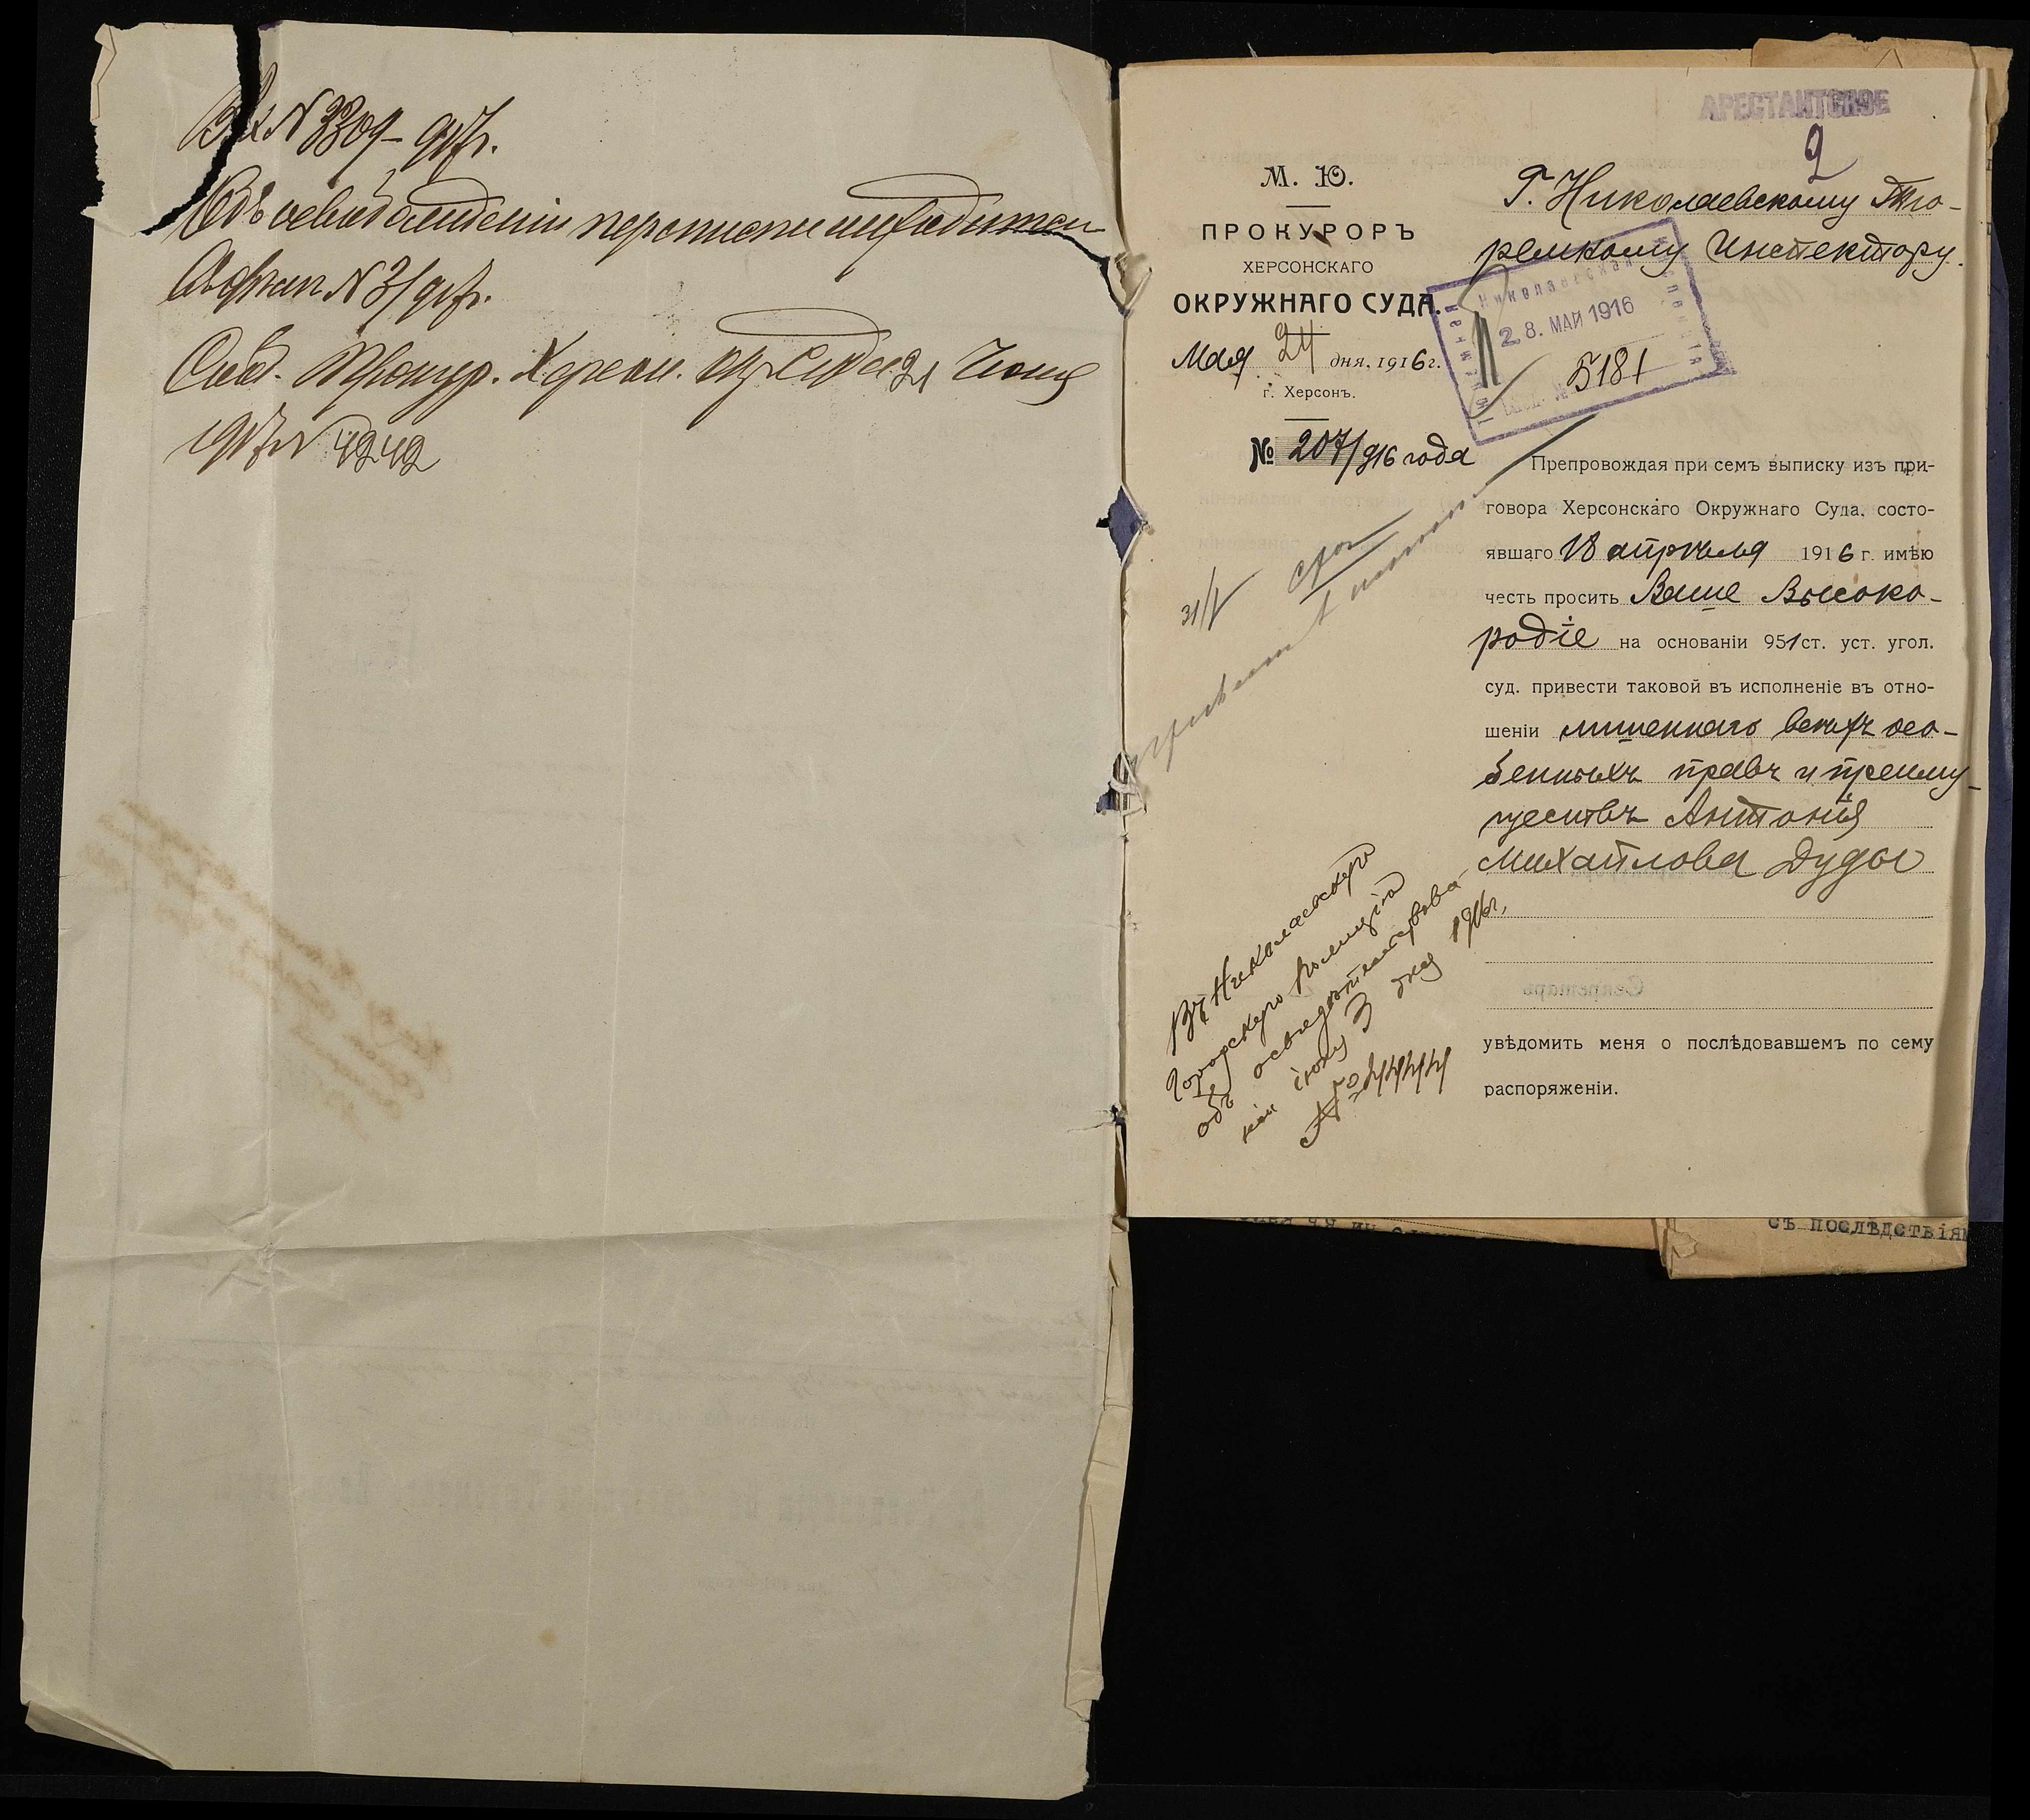 Вх N 3309 – 917г.
Объ освобожденіи переписки
N 3/917г.
Прокур. Херсон. Окр. Суда 21 Іюня
1917 N 4242
АРЕСТАНТСКОЕ
2
М. Ю.
ПРОКУРОРЪ
ХЕРСОНСКАГО
ОКРУЖНАГО СУДА.
Мая 24 дня, 1916 г.
г. Херсонъ.
№ 207/916 года
Г. Николаевскому Тю-
ремному Инспектору.
Николаевская
Тюремная
Инспекція
28. МАЙ 1916
5181
Препровождая при семъ выписку изъ при-
говора Херсонскаго Окружнаго Суда, состо-
явшаго 18 апрѣля 1916 г. имѣю
честь просить Ваше Высоко-
родіе на основаніи 951 ст. уст. угол.
суд. привести таковой въ исполненіе въ отно-
шеніи лишеннаго всѣхъ осо-
бенныхъ правъ и преиму-
ществъ Антонія
Михайлова Дуды
Секретарь
увѣдомить меня о послѣдовавшемъ по сему
распоряженіи.
31/V срок
Въ Николаевскую
Городскую полицію
объ освидѣтельствова-
ніи іюня 3 дня 1916 г.
№ 4444
съ послѣдствія